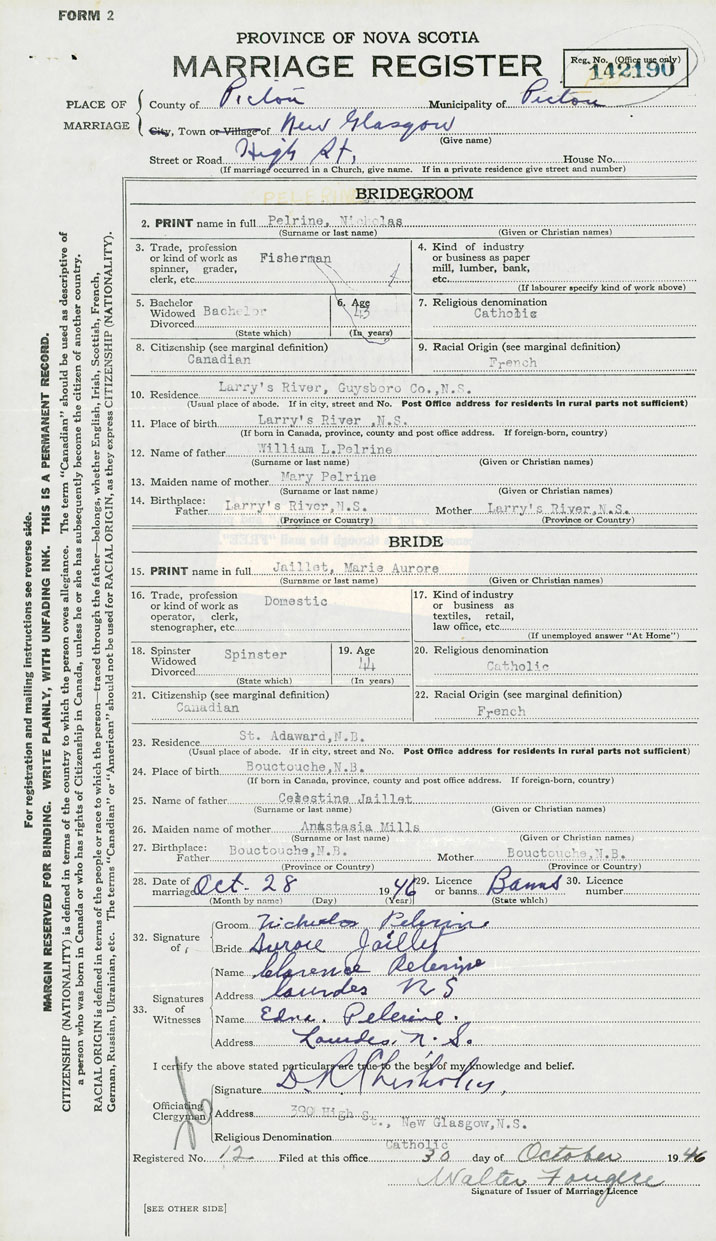 FORM 2
PROVINCE OF NOVA SCOTIA
MARRIAGE REGISTER
Reg. No. (Office use only)
142190
PLACE OF MARRIAGE
County of Pictou Municipality of Pictou
City, Town or Village of New Glasgow
(Give name)
Street or Road High St, House No.
(If marriage occurred in a Church, give name. If in a private residence give street and number)
BRIDEGROOM
2. PRINT name in full Pelrine, Nicholas
(Surname or last name) (Given or Christian names)
3. Trade, profession or kind of work as spinner, grader, clerk, etc. Fisherman
4. Kind of industry or business as paper mill, lumber, bank, etc.
(If labourer specify kind of work above)
5. Bachelor Widowed Divorced Bachelor
(State which)
6. Age 43
(In years)
7. Religious denomination
Catholic
8. Citizenship (see marginal definition)
Canadian
9. Racial Origin (see marginal definition)
French
10. Residence Larry's River, Guysboro Co., N.S.
(Usual place of abode. If in city, street and No. Post Office address for residents in rural parts not sufficient)
11. Place of birth Larry's River ,N.S.
(If born in Canada, province, county and post office address. If foreign-born, country)
12. Name of father William L.Pelrine
(Surname or last name) (Given or Christian names)
13. Maiden name of mother Mary Pelrine
(Surname or last name) (Given or Christian names)
14. Birthplace: Father Larry's River,N.S. Mother Larry's River,N.S.
(Province or Country) (Province or Country)
BRIDE
15. PRINT name in full Jaillet, Marie Aurore
(Surname or last name) (Given or Christian names)
16. Trade, profession or kind of work as operator, clerk, stenographer, etc Domestic
17. Kind of industry or business as textiles, retail, law office, etc.
(If unemployed answer "At Home")
18. Spinster Widowed Divorced Spinster
(State which)
19. Age 44
(In years)
20. Religious denomination
Catholic
21. Citizenship (see marginal definition)
Canadian
22. Racial Origin (see marginal definition)
French
23. Residence St. Adaward,N.B.
(Usual place of abode. If in city, street and No. Post Office address for residents in rural parts not sufficient)
24. Place of birth Bouctouche,N.B.
(If born in Canada, province, county and post office address. If foreign-born, country)
25. Name of father Celestine Jaillet
(Surname or last name) (Given or Christian names)
26. Maiden name of mother Anastasia Mills
(Surname or last name) (Given or Christian names)
27. Birthplace: Father Bouctouche,N.B. Mother Bouctouche,N.B.
(Province or Country) (Province or Country)
28. Date of marriage Oct. 28 1946 29. Licence or banns Banns 30. Licence number
(Month by name) (Day) (Year) (State which)
32. Signature of
Groom Nicholas Pelerine
Bride Aurore Jaillet
33. Signatures of Witnesses
Name Clarence Pelerine
Address Lourdes N S
Name Edna Pelerine.
Address Lourdes, N. S.
I certify the above stated particulars are true to the best of my knowledge and belief.
Officiating Clergyman
Signature D. R. Chisholm,
Address 390 High St., New Glasgow,N.S.
Religious Denomination Catholic
Registered No. 12 Filed at this office 30 day of October 1946
Walter Fougere
Signature of Issuer of Marriage Licence
[SEE OTHER SIDE]
For registration and mailing instructions see reverse side.
MARGIN RESERVED FOR BINDING. WRITE PLAINLY, WITH UNFADING INK. THIS IS A PERMANENT RECORD.
CITIZENSHIP (NATIONALITY) is defined in terms of the country to which the person owes allegiance. The term "Canadian" should be used as descriptive of
a person who was born in Canada or who has rights of Citizenship in Canada, unless he or she has subsequently become the citizen of another country.
RACIAL ORIGIN is defined in terms of the people or race to which the person—traced through the father—belongs, whether English, Irish, Scottish, French,
German, Russian, Ukrainian, etc. The terms "Canadian" or "American" should not be used for RACIAL ORIGIN, as they express CITIZENSHIP (NATIONALITY).